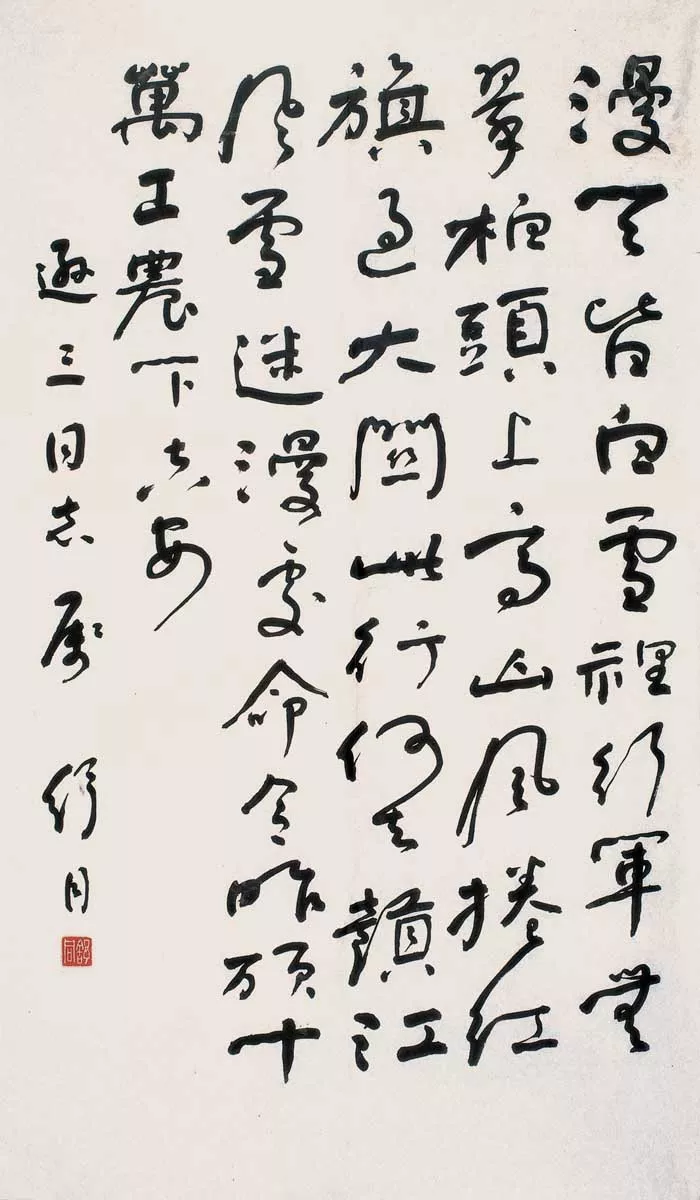 漫天皆白雪裡行軍無
翠柏頭上高山風捲紅
旗過大關此行何去贛江
風雪迷漫處命令昨頒十
萬工農下吉安
遜三同志属 舒同
舒同